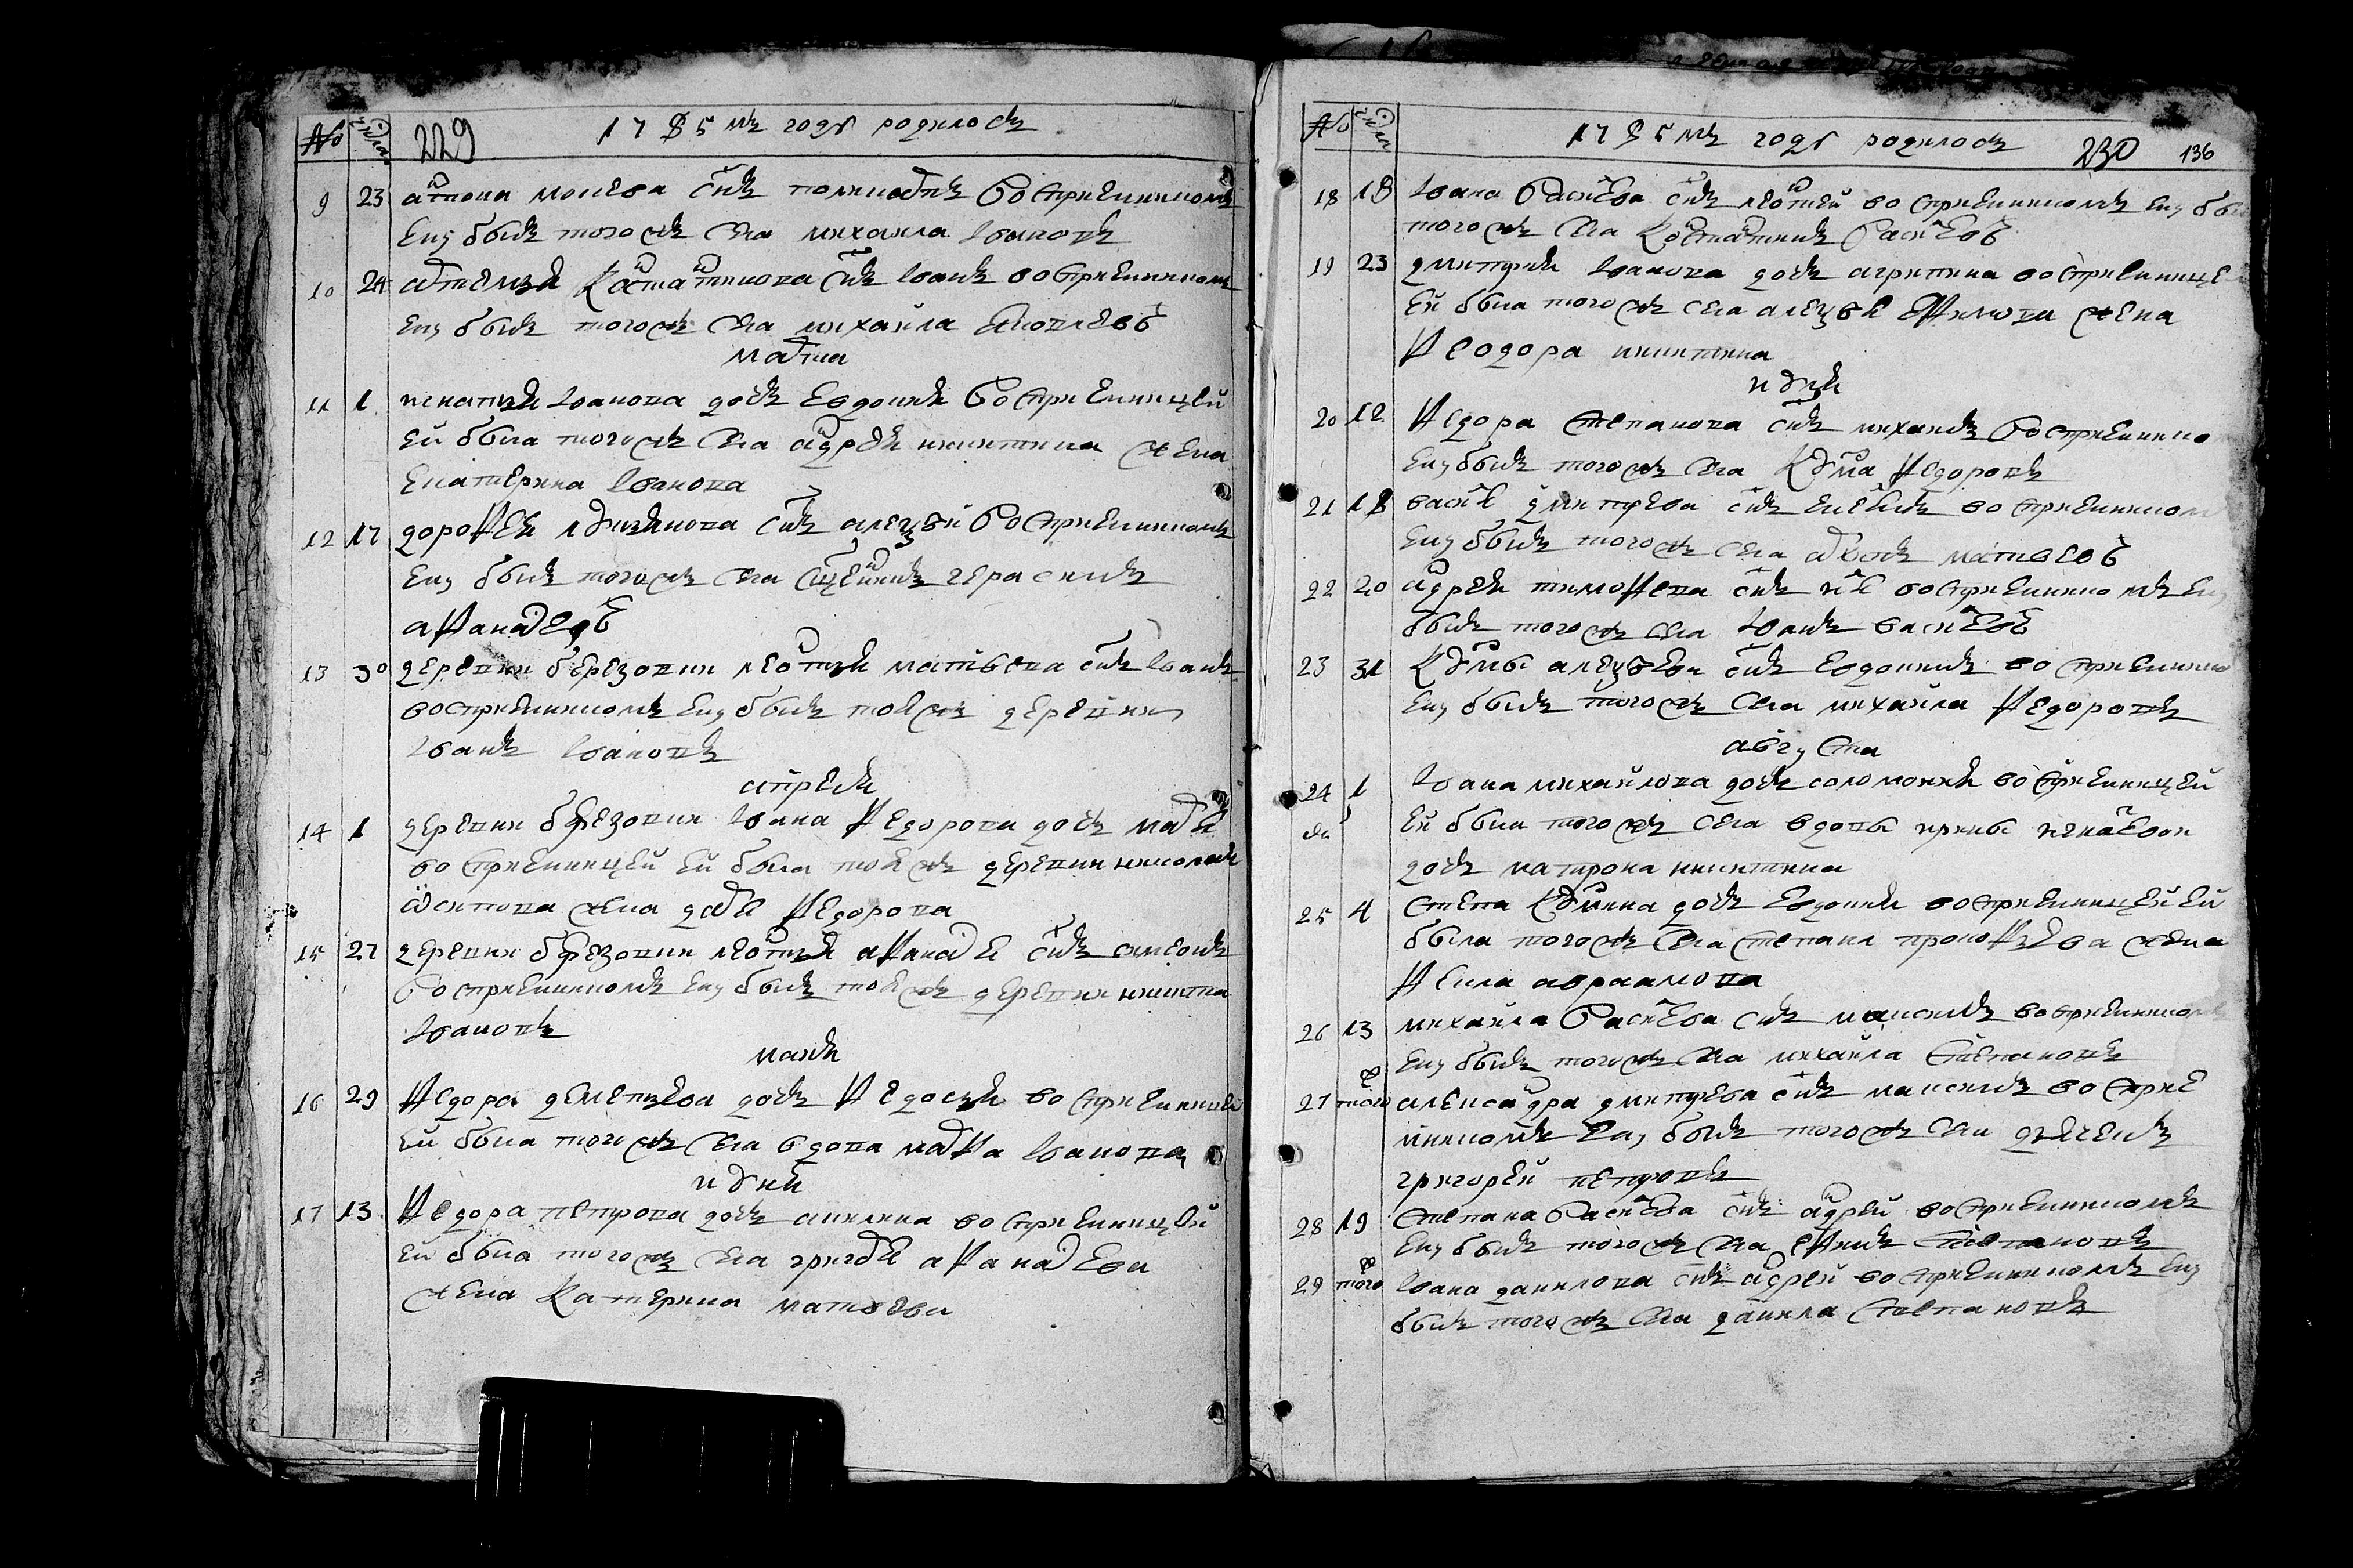 № числа 229 1785 мъ году родилось
9 23 антона моисева снъ поликарпъ восприемникомъ
ему былъ тогожъ села михаила Ивановъ
10 24 артемья Костантинова снъ Иванъ восприемникомъ
ему былъ тогожъ села михаила
марта
11 1 игнатья Иванова дочь Евдокия воспри емницей
ей была тогожъ села андрея никитина жена
Екатерина Иванова
12 17 дорофея лукьянова снъ алеѯѣй воспри емникомъ
ему былъ тогожъ села сщенникъ герасимъ
афанасьевъ
13 30 деревни березовки леонтья матвѣева снъ Иванъ
воспри емникомъ ему былъ тояжъ деревни
Иванъ Ивановъ
апреля
14 1 деревни березовки Ивана федорова дочь марья
во спри емницей ей была тояжъ деревни николая
осипова жена дарья федорова
15 27 деревни березовки леонтья афанасьева снъ симеонъ
воспри емникомъ ему былъ тояжъ деревни никита
Ивановъ
маия
16 29 федора дементьева дочь федосья воспри емницей
ей была тогожъ села вдова марфа Иванова
июня
17 13 федора петрова дочь акилина воспри емницей
ей была тогожъ села григорья афанасьева
жена Катерина матвѣева
№ числа 1785 мъ году родилось 230 136
18 18 Ивана васильева снъ леонтей воспри емникомъ ему былъ
тогожъ села Костантинъ васильевъ
19 23 дмитрия Иванова дочь агрипина воспри емницей
ей была тогожъ села алеѯѣя ефимова жена
феодора никитина
июля
20 12 федора степанова снъ михаилъ воспри емникомъ
ему былъ тогожъ села Кузма федоровъ
21 18 василья дмитрева снъ воспри емникомъ
ему былъ тогожъ села матвѣевъ
22 20 андрея тимофеева снъ илья воспри емникомъ ему
былъ тогожъ села Иванъ васильевъ
23 31 Кузмы алеѯѣева снъ Евдокимъ воспри емникомъ
ему былъ тогожъ села михаила федоровъ
августа
24 1 Ивана михайлова дочь соломония воспри емницей
ей была тогожъ села вдовы ирины игнатьевой
дочь матрона никитина
25 4 степана Кузмина дочь Евдокия воспри емницей ей
была тогожъ села степана прокофьева жена
фекла авраамова
26 13 михайла васильева снъ максимъ воспри емникомъ
ему былъ тогожъ села михайла степановъ
27 тогоже александра дмитрева снъ максимъ во спри е
мникомъ ему былъ тогожъ села дьячекъ
григорей петровъ
28 19 степана васильева снъ андрей воспри емникомъ
ему былъ тогожъ села ефимъ степановъ
29 тогоже Ивана данилова снъ андрей воспри емникомъ ему
былъ тогожъ села данила степановъ